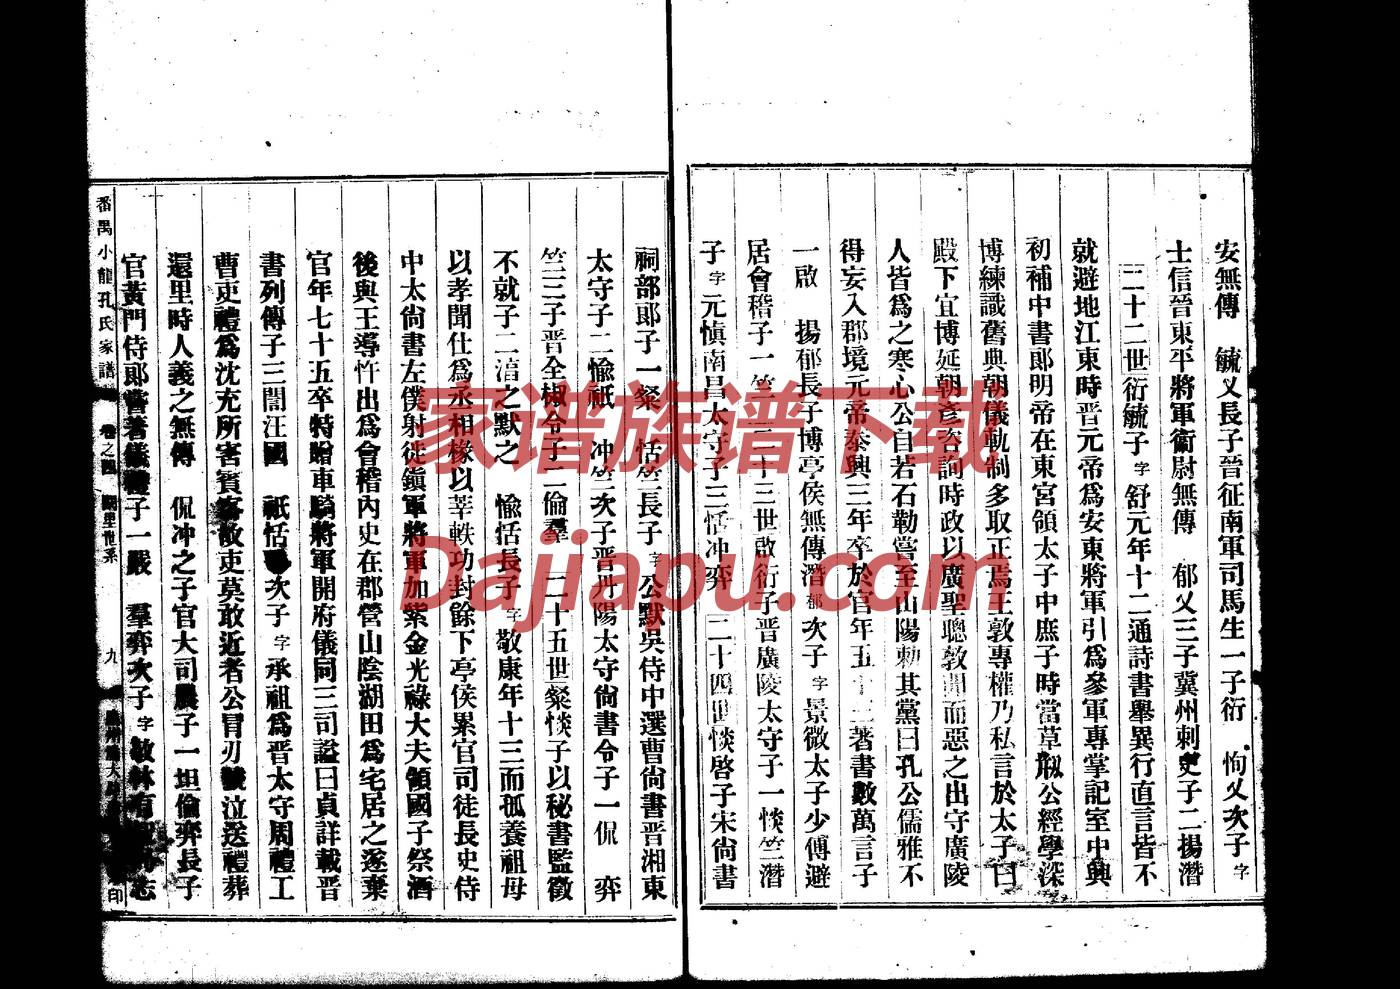 安無傳　毓乂長子晉征南軍司馬生一子衍　恂乂次子字
士信晉東平將軍衞尉無傳　郁乂三子冀州刺史子二揚潛
二十二世衍毓子字舒元年十二通詩書舉異行直言皆不
就避地江東時晉元帝爲安東將軍引爲參軍專掌記室中興
初補中書郞明帝在東宮領太子中庶子時當草刱公經學深
博練識舊典朝儀軌制多取正焉王敦專權乃私言於太子曰
殿下宜博延朝彥咨詢時政以廣聖聰敦聞而惡之出守廣陵
人皆爲之寒心公自若石勒嘗至山陽勅其黨曰孔公儒雅不
得妄入郡境元帝泰興三年卒於官年五十三著書數萬言子
一啟　揚郁長子博亭侯無傳潛郁次子字景微太子少傅避
居會稽子一竺二十三世啟衍子晉廣陵太守子一惔竺潛
子字元愼南昌太守子三恬冲弈　二十四世惔啓子宋尙書
祠部郞子一粲　恬竺長子字公默吳侍中選曹尙書晉湘東
太守子二愉祇　冲竺次子晉丹陽太守尙書令子一侃　弈
竺三子晉全椒令子二倫羣　二十五世粲惔子以秘書監徵
不就子二湻之默之　愉恬長子字敬康年十三而孤養祖母
以孝聞仕爲丞相椽以莘軼功封餘下亭侯累官司徒長史侍
中太尙書左僕射徙鎭軍將軍加紫金光祿大夫領國子祭酒
後與王導忤出爲會稽內史在郡營山陰湖田爲宅居之逐棄
官年七十五卒特贈車騎將軍開府儀同三司諡曰貞詳載晉
書列傳子三誾汪國　祇恬次子字承祖爲晉太守周禮工
曹吏禮爲沈充所害賓客故吏莫敢近者公冒刃號泣送禮葬
還里時人義之無傳　侃冲之子官大司農子一坦倫弈長子
官黃門侍郞嘗著儀禮子一嚴　羣弈次子字敬林有志
番禺小龍孔氏家譜　卷之　闕里世系　九　印
家谱族谱下载
Dajiapu.com